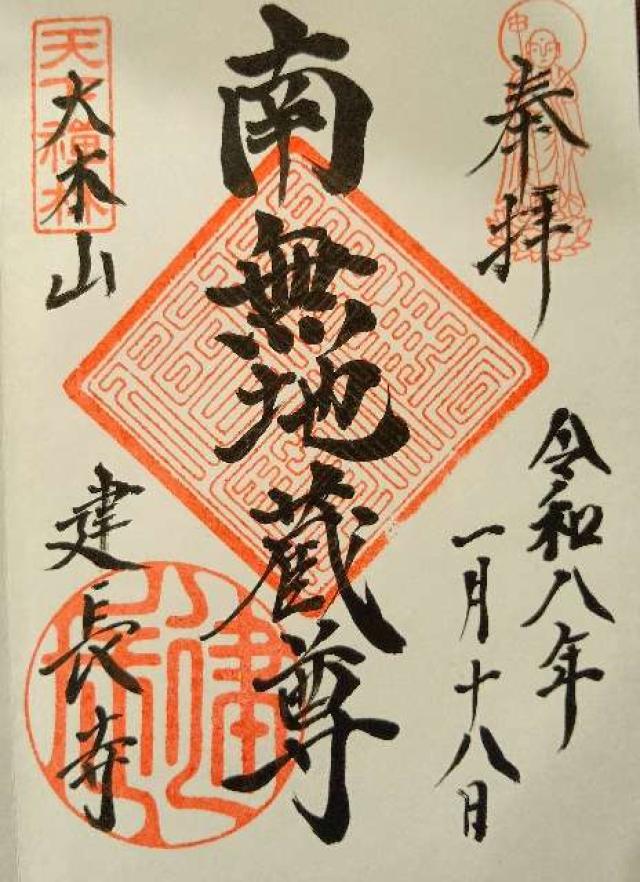 奉拝
令和八年
一月十八日
南無地蔵尊
大本山
建長寺
天下禅林